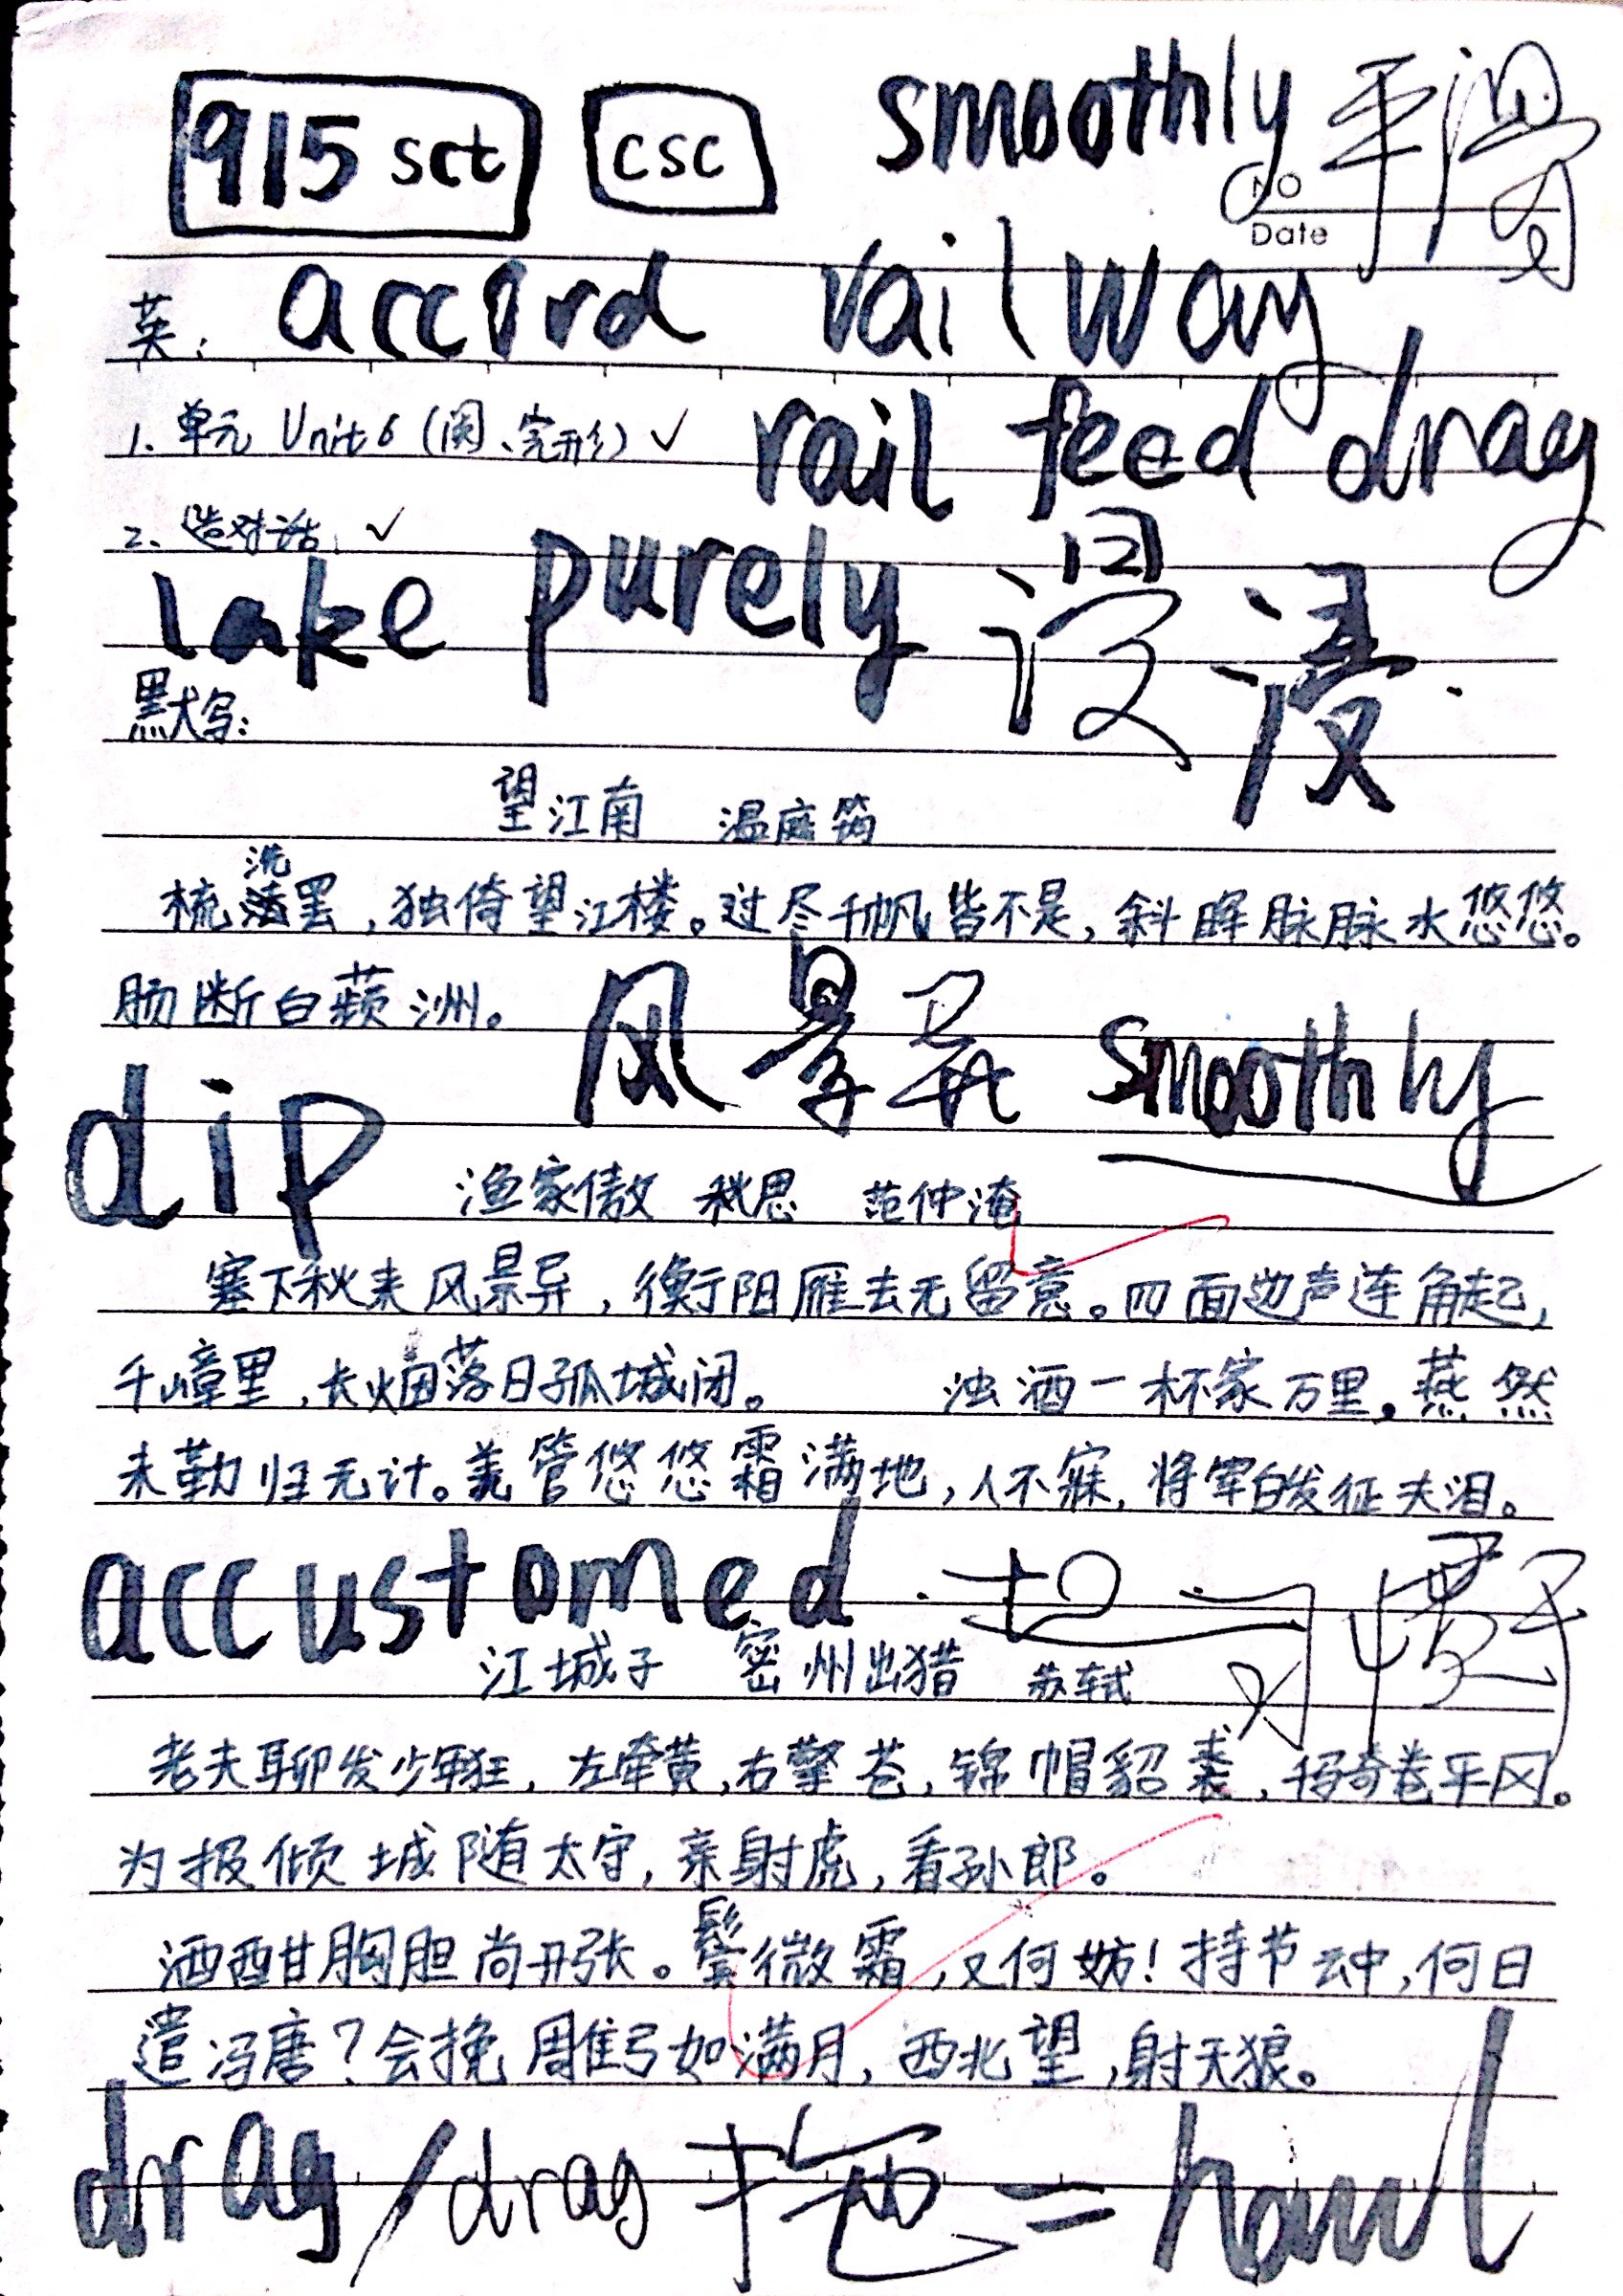 915 sct csc smoothly 平滑
NO
Date
英: accord railway
1. 单元 Unit 6 (阅、完形) ✓ rail feed drag
2. 造对话 ✓
lake purely 浸 浸
默写:
望江南 温庭筠
梳洗罢,独倚望江楼。过尽千帆皆不是,斜晖脉脉水悠悠。
肠断白蘋洲。
风景异 smoothly
dip
渔家傲 秋思 范仲淹
塞下秋来风景异,衡阳雁去无留意。四面边声连角起,
千嶂里,长烟落日孤城闭。 浊酒一杯家万里,燕然
未勒归无计。羌管悠悠霜满地,人不寐,将军白发征夫泪。
accustomed 习惯
江城子 密州出猎 苏轼
老夫聊发少年狂,左牵黄,右擎苍,锦帽貂裘,千骑卷平冈。
为报倾城随太守,亲射虎,看孙郎。
酒酣胸胆尚开张。鬓微霜,又何妨!持节云中,何日
遣冯唐?会挽雕弓如满月,西北望,射天狼。
drag/drag 拖 = hawl